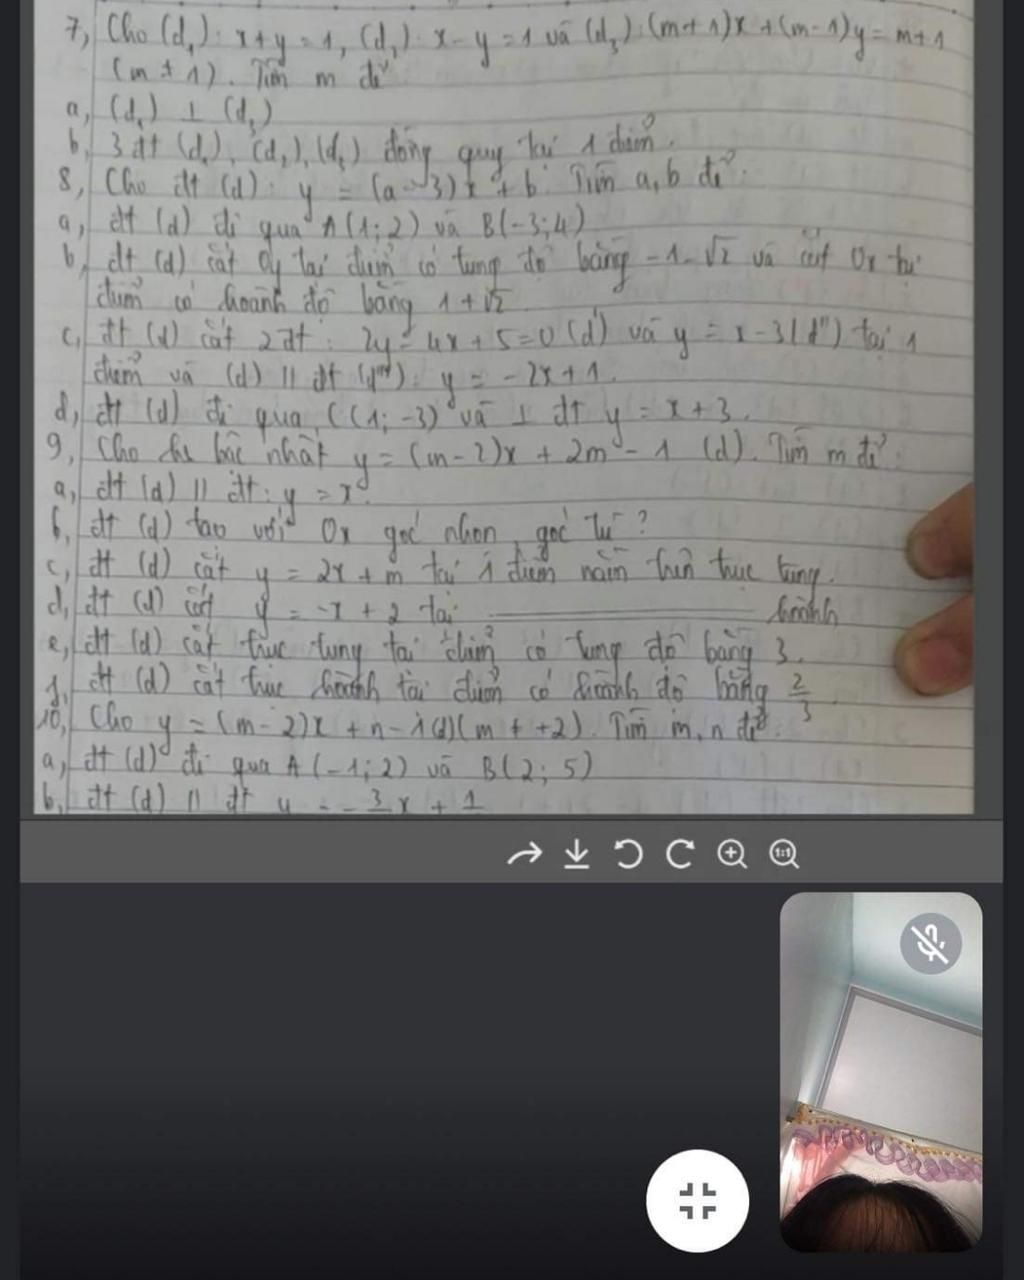 7, Cho (d₁): x+y=1, (d₂): x-y=1 và (d₃): (m+1)x+(m-1)y=m+1
(m ≠ 1). Tìm m để
a, (d₁) ⊥ (d₃)
b, 3 đt (d₁), (d₂), (d₃) đồng quy tại 1 điểm.
8, Cho đt (d): y = (a-3)x + b. Tìm a, b để:
a, đt (d) đi qua A(1; 2) và B(-3; 4)
b, đt (d) cắt Oy tại điểm có tung độ bằng -1-√2 và cắt Ox tại
điểm có hoành độ bằng 1+√2
c, đt (d) cắt 2 đt: 2y-4x+5=0 (d') và y = x-3 (d'') tại 1
điểm và (d) // đt (d'''): y = -2x+1.
d, đt (d) đi qua C(1; -3) và ⊥ đt y = x+3.
9, Cho hs bậc nhất y = (m-2)x + 2m - 1 (d). Tìm m để:
a, đt (d) // đt: y = x.
b, đt (d) tạo với Ox góc nhọn, góc tù?
c, đt (d) cắt y = 2x+m tại 1 điểm nằm trên trục tung.
d, đt (d) cắt y = -x+2 tại ____ hoành
e, đt (d) cắt trục tung tại điểm có tung độ bằng 3.
f, đt (d) cắt trục hoành tại điểm có hoành độ bằng 2/3
10, Cho y = (m-2)x + n-1 (d) (m ≠ +2). Tìm m, n để:
a, đt (d) đi qua A(-1; 2) và B(2; 5)
b, đt (d) // đt y = -3 x + 1
1:1